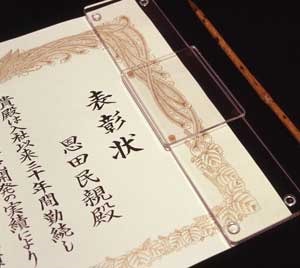 表彰状
恩田民親殿
貴殿は入社以来二十年間勤続し
開発の実績により